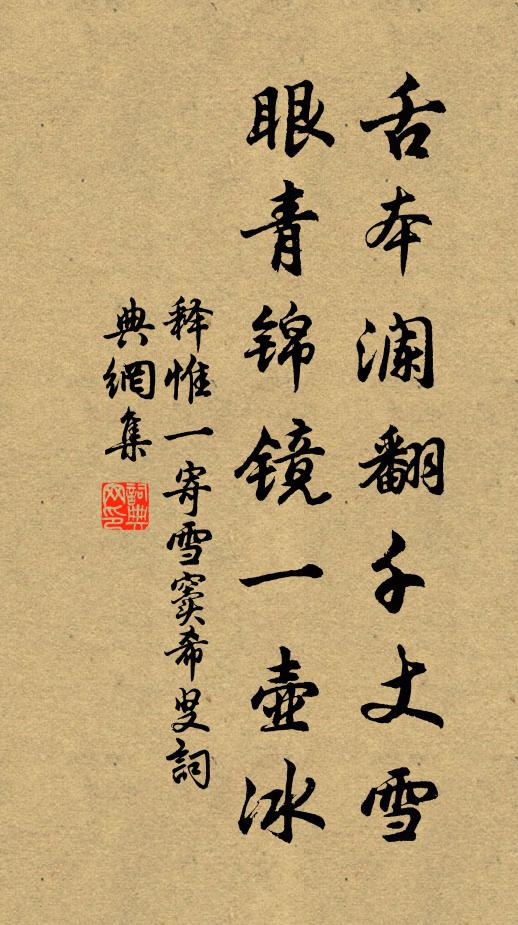 舌本澜翻千丈雪
眼青锦镜一壶冰
释惟一寄雪窦希叟詞
典網集
詞典
网印